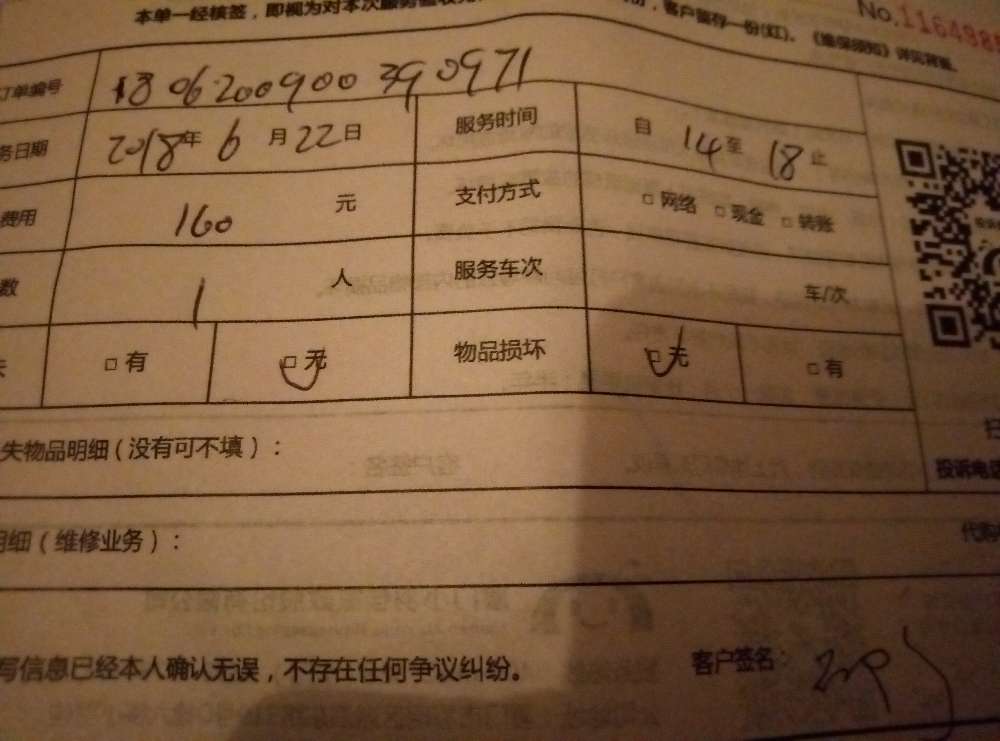 本单一经核签，即视为对本次服务
，客户留存一份(红)。《维保须知》详见背面。
No.116498
订单编号 180620090039 0971
务日期 2018年 6 月 22 日 服务时间 自 14 至 18 止
费用 160 元 支付方式 □ 网络 □ 现金 □ 转账
数 1 人 服务车次 车/次
失 □ 有 □ 无 物品损坏 □ 无 □ 有
失物品明细（没有可不填）：
投诉电话
明细（维修业务）：
代购
写信息已经本人确认无误，不存在任何争议纠纷。 客户签名：